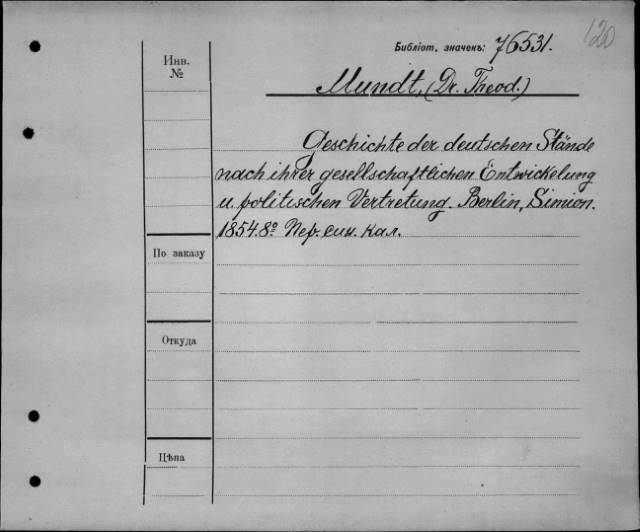 120
Библіот. значекъ: 76531.
Инв.
№
Mundt, (Dr. Theod.)
Geschichte der deutschen Stände
nach ihrer gesellschaftlichen Entwickelung
u. politischen Vertretung. Berlin, Simion.
1854. 8º. Пер. син. кал.
По заказу
Откуда
Цѣна